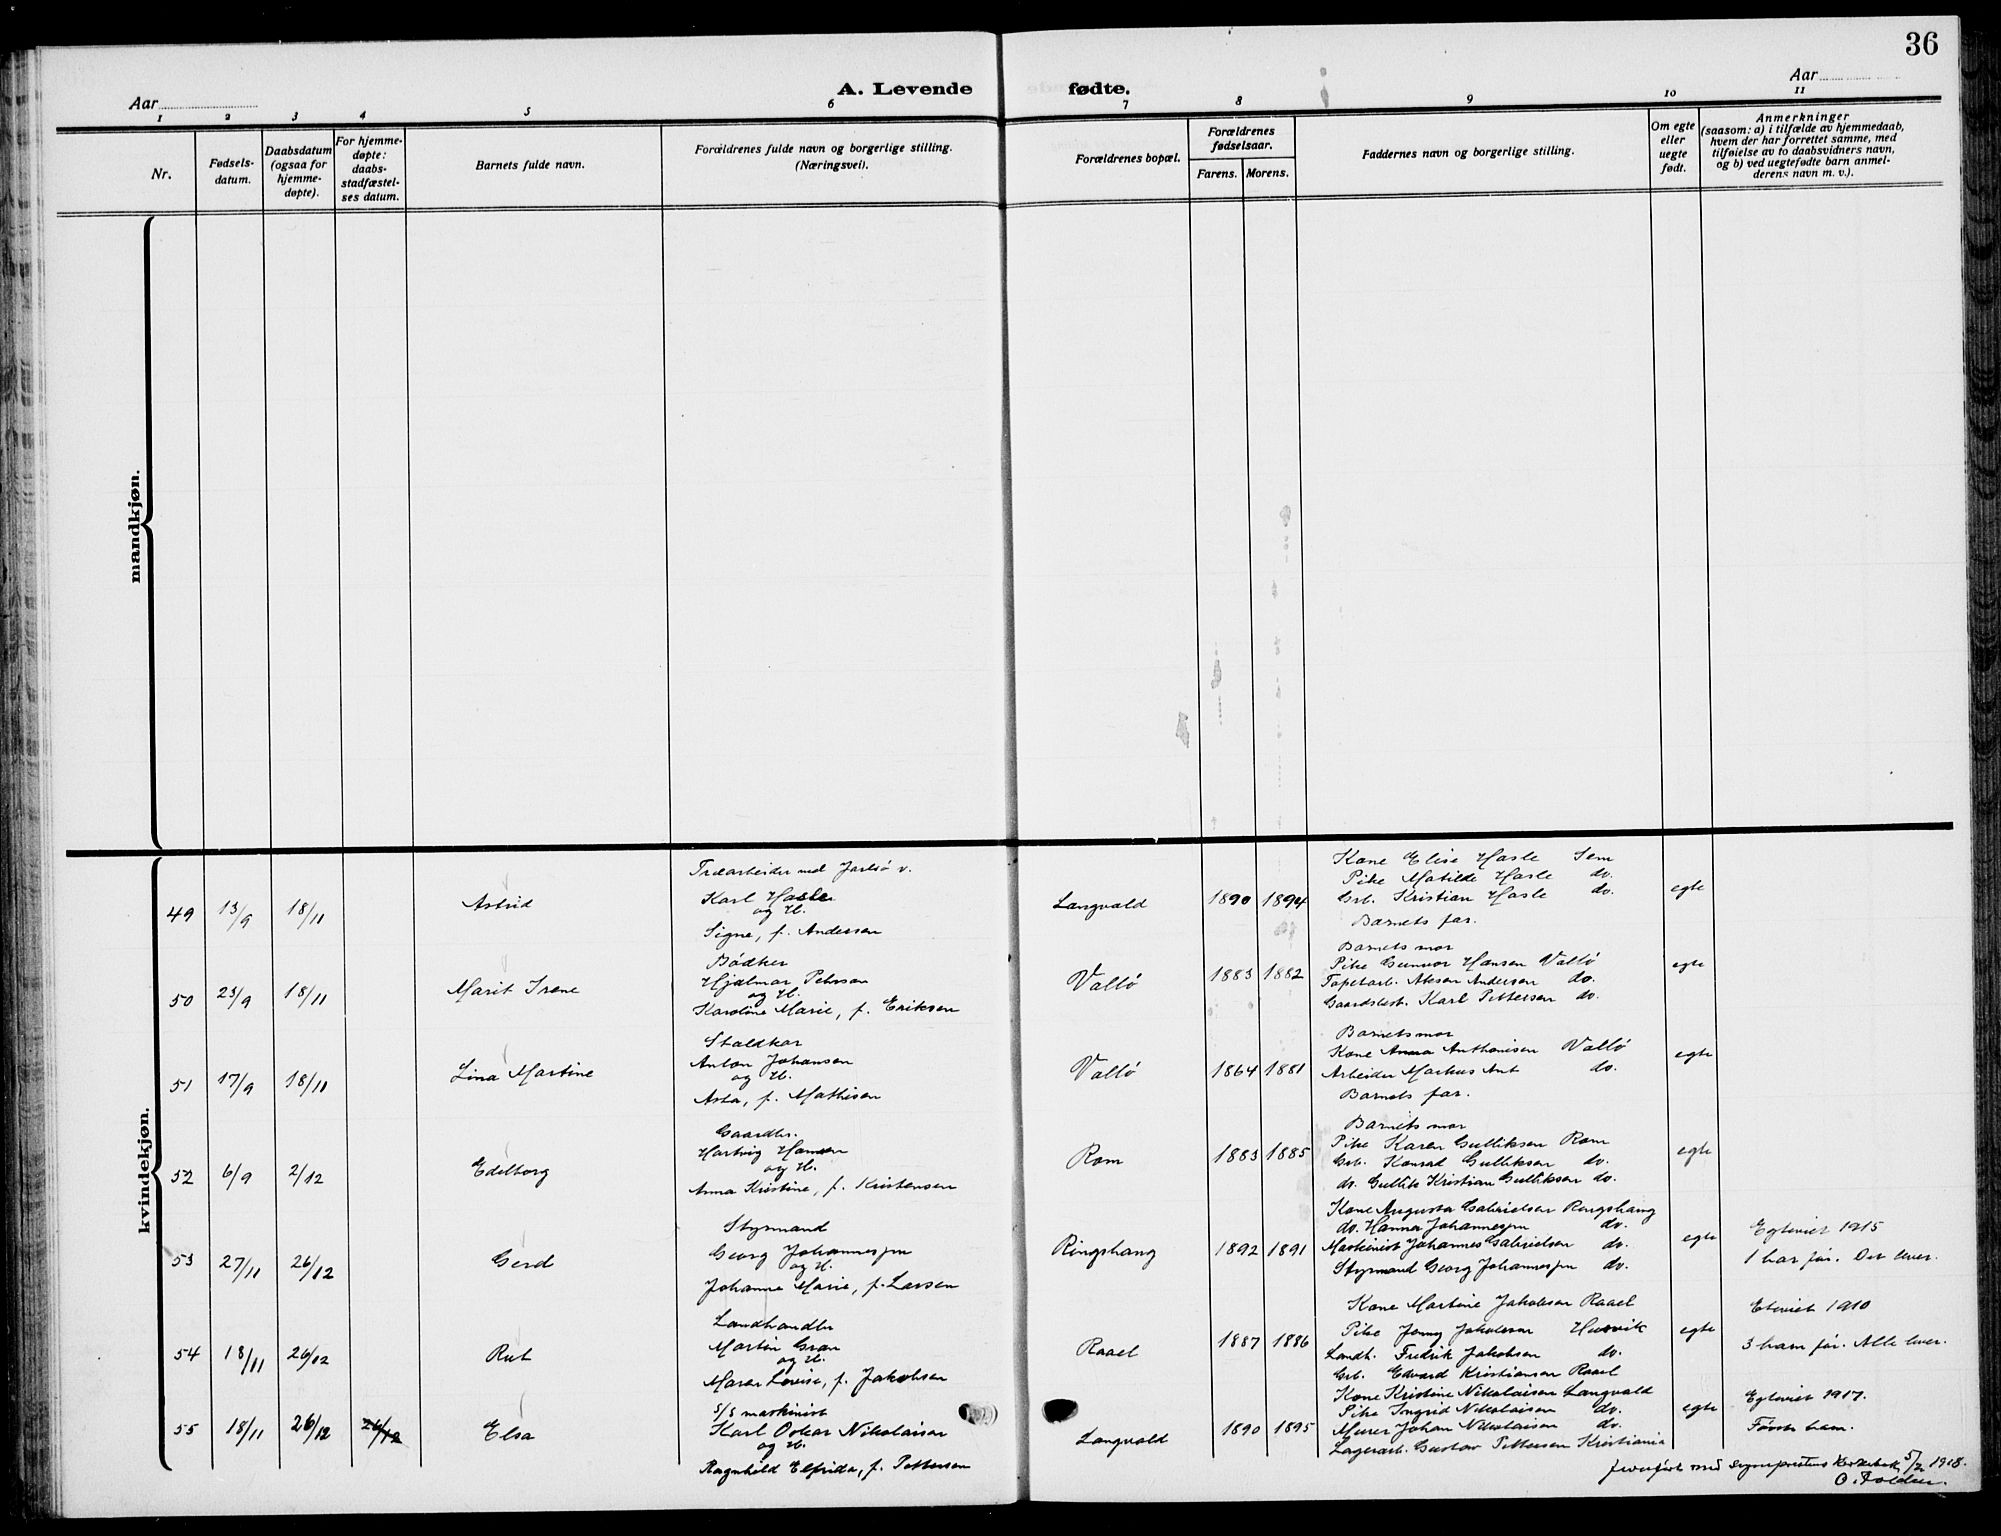 36
Aar
A. Levende fødte.
Aar
1 2 3 4 5 6 7 8 9 10 11
Nr.
Fødsels-
datum.
Daabsdatum
(ogsaa for
hjemme-
døpte).
For hjemme-
døpte:
daabs-
stadfæstel-
ses datum.
Barnets fulde navn.
Forældrenes fulde navn og borgerlige stilling.
(Næringsvei).
Forældrenes bopæl.
Forældrenes
fødselsaar.
Farens. Morens.
Faddernes navn og borgerlige stilling.
Om egte
eller
uegte
født.
Anmerkninger
(saasom: a) i tilfælde av hjemmedaab,
hvem der har forrettet samme, med
tilføielse av to daabsvidners navn,
og b) ved uegtefødte barn anmel-
derens navn m. v.).
mandkjøn.
kvindekjøn.
49 13/9 18/11 Astrid
Træarbeider ved Jarlsø v.
Karl Hasle
og H.
Signe, f. Andersen
Langvald 1890 1894
Kone Elise Hasle Sem
Pike Matilde Hasle do.
Grb. Kristian Hasle do.
Barnets far.
egte
50 23/9 18/11 Marit Irene
Bödker
Hjalmar Petersen
og H.
Karoline Marie, f. Eriksen
Vallö 1883 1882
Barnets mor
Pike Gunvor Hansen Vallö
Tapetarb. Aksen Andersen do.
Gaardsbest. Karl Pettersen do.
egte
51 17/9 18/11 Lina Martine
Staldkar
Anton Johansen
og H.
Asta, f. Mathisen
Vallö 1864 1881
Barnets mor
Kone Anna Anthonisen Vallö
Arbeider Markus Ant do.
Barnets far.
egte
52 6/9 2/12 Edelborg
Gaardbr.
Hartvig Hansen
og H.
Anna Kristine, f. Kristensen
Rom 1883 1885
Barnets mor
Pike Karen Gulliksen Rom
Grb. Konrad Gulliksen do.
do. Gullik Kristian Gulliksen do.
egte
53 27/11 26/12 Gerd
Styrmand
Georg Johannesen
og H.
Johanne Marie, f. Larsen
Ringshaug 1892 1891
Kone Augusta Gabrielsen Ringshaug
do. Hanna Johannesen do.
Maskinist Johannes Gabrielsen do.
Styrmand Georg Johannesen do.
egte
Egteviet 1915
1 har før. Det lever.
54 18/11 26/12 Rut
Landhandler
Martin Gran
og H.
Maren Lovise, f. Jakobsen
Raael 1887 1886
Kone Martine Jakobsen Raael
Pike Jenny Jakobsen Husvik
Landh. Fredrik Jakobsen do.
Grb. Edvard Kristiansen Raael
egte
Eteviet 1910
3 barn før. Alle lever.
55 18/11 26/12 26/12 Elsa
S/S maskinist
Karl Oskar Nikolaisen
og H.
Ragnhild Elfrida, f. Pettersen
Langvald 1890 1895
Kone Kristine Nikolaisen Langvald
Pike Ingrid Nikolaisen do.
Murer Johan Nikolaisen do.
Lagerarb. Gustav Pettersen Kristiania
egte
Egteviet 1917.
Første barn.
Jevnført med sogneprestens kirkebok 5/2 1918.